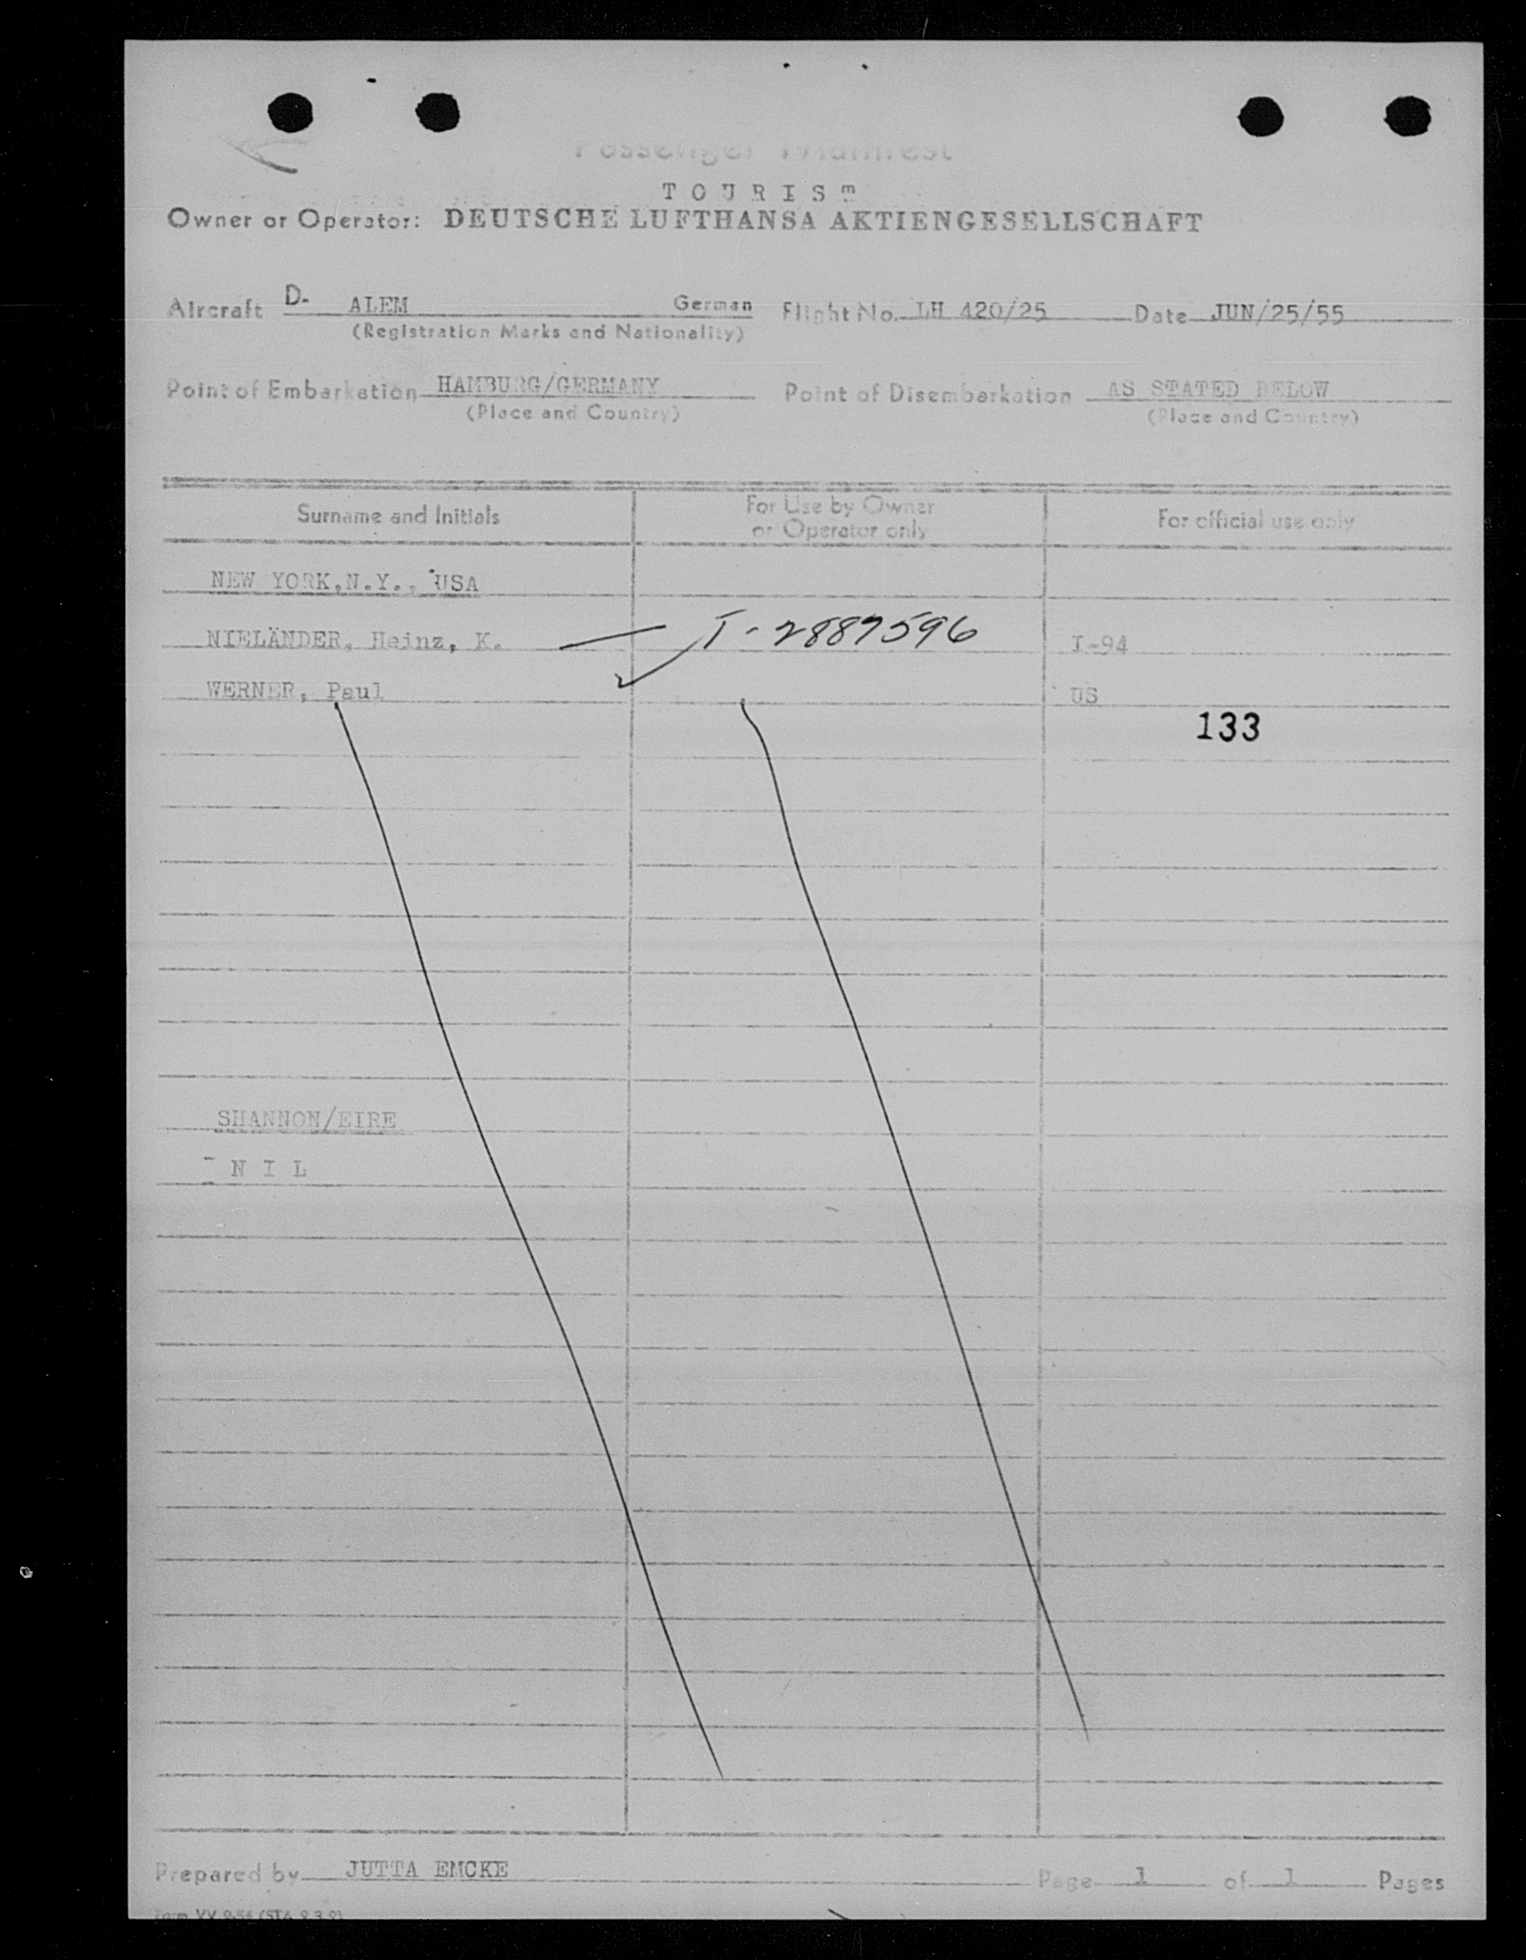 Passenger Manifest
T O U R I S m
Owner or Operator: DEUTSCHE LUFTHANSA AKTIENGESELLSCHAFT
Aircraft D- ALEM German Flight No. LH 420/25 Date JUN/25/55
(Registration Marks and Nationality)
Point of Embarkation HAMBURG/GERMANY Point of Disembarkation AS STATED BELOW
(Place and Country) (Place and Country)
Surname and Initials For Use by Owner or Operator only For official use only
NEW YORK,N.Y., USA
NIELÄNDER, Heinz, K. T-2887596 I-94
WERNER, Paul US
133
SHANNON/EIRE
- N I L
Prepared by JUTTA EMCKE Page 1 of 1 Pages